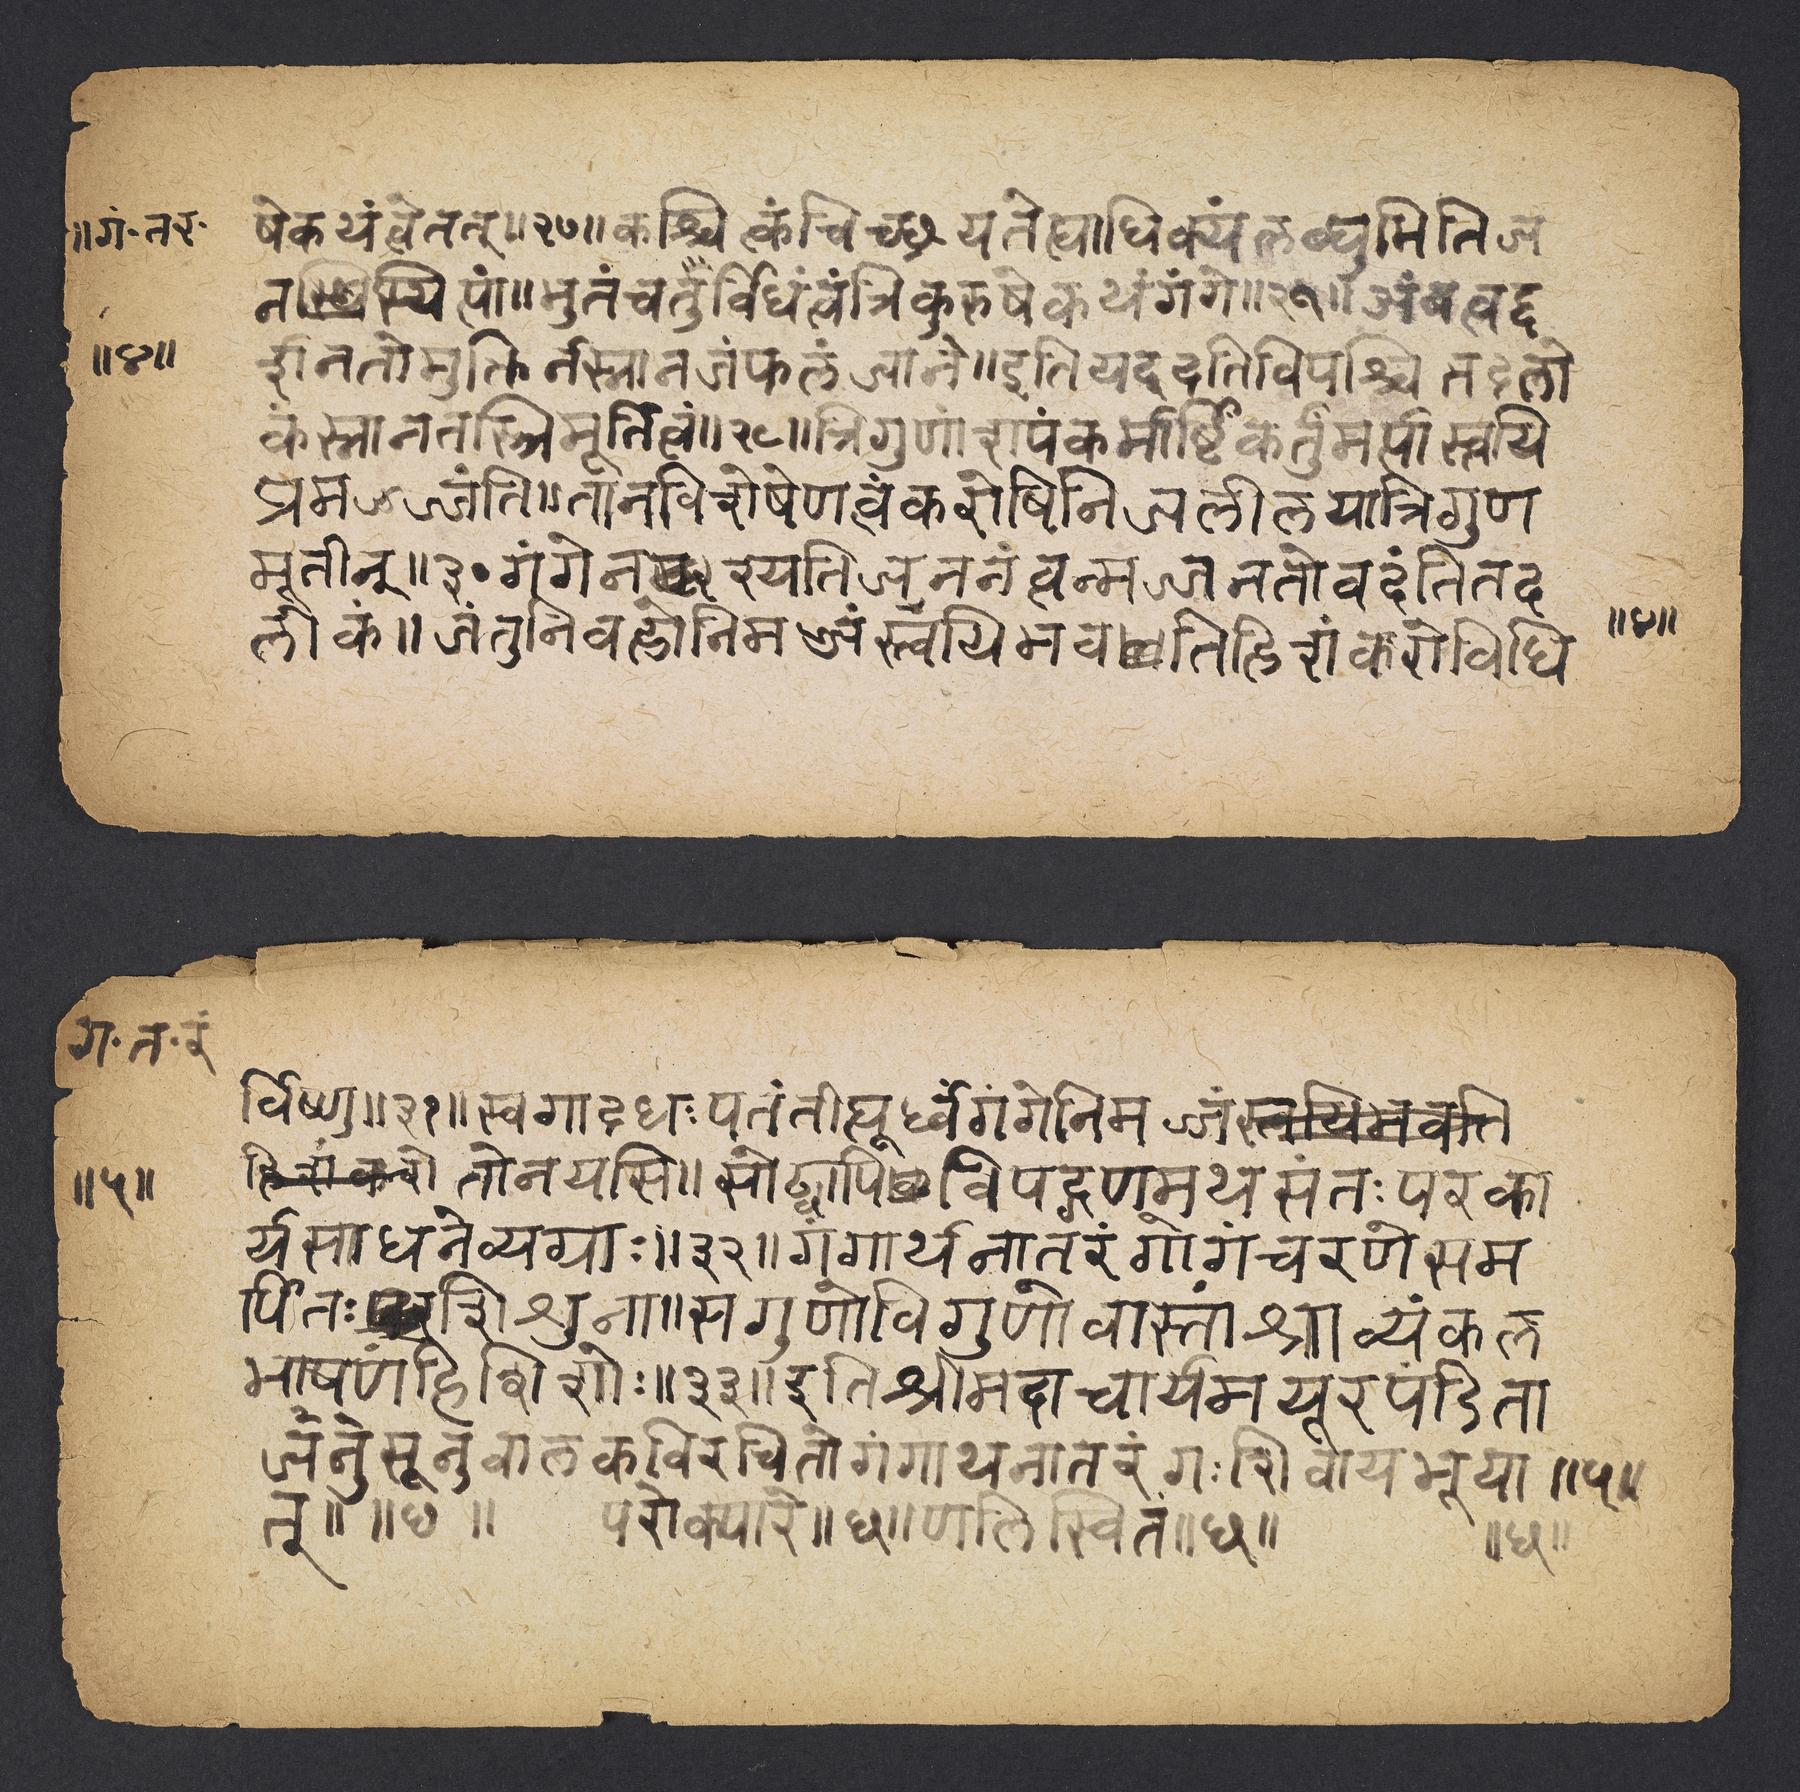 ॥गं॰ तर॰
षेकथंत्वेतत्॥२७॥कश्चित्कंचिच्छ्रयतेत्द्याधिक्यंलब्धुमितिज
नस्थि पां॥भुतंचतुर्विधंत्वंत्रिकुरुषेकथंगंगे॥२८॥अंबत्वद्द
॥४॥
र्शनतोमुक्तिर्नस्नानजंफलंजाने॥इतियद्वदतिविपश्चित्तदलो
कंस्नानतस्त्रिमूर्तित्वं॥२९॥त्रिगुणां शपंकमार्ष्टिंकर्तुंमर्त्पास्त्वयि
प्रमज्जंति॥तानविशेषेणत्वंकरोषिनिजलीलयात्रिगुण
मूर्तीन्॥३॰गंगेन रयतिजननंत्वन्मज्जनतोवदंतितद
लीकं॥जंतुनिवत्द्दोनिमज्जंस्त्वयिभव तिहिशंकरोविधि
॥४॥
ग॰ त॰ रं
र्विष्णु॥३१॥स्वगादधःपतंतीत्द्यूर्ध्वंगंगेनिमज्जंस्त्वयिभवति
॥५॥
हिशंकरो तोनयसि॥सोढ्वापि विपद्गणमथसंतःपरका
र्यसाधनेव्यग्राः॥३२॥गंगार्थनातरंगोगंचरणेसम
र्पितः शिशुना॥सगुणोविगुणोवास्तांश्राव्यंकल
भाषणंहिशिशोः॥३३॥इतिश्रीमदाचार्यमयूरपंडिता
जंनुसूनुबालकविरचितोगंगार्थनातरंगःशिवायभूया ॥५॥
त्॥ ॥छ॥ परोक्यारे॥ध॥णलिखितं॥ध॥ ॥ध॥